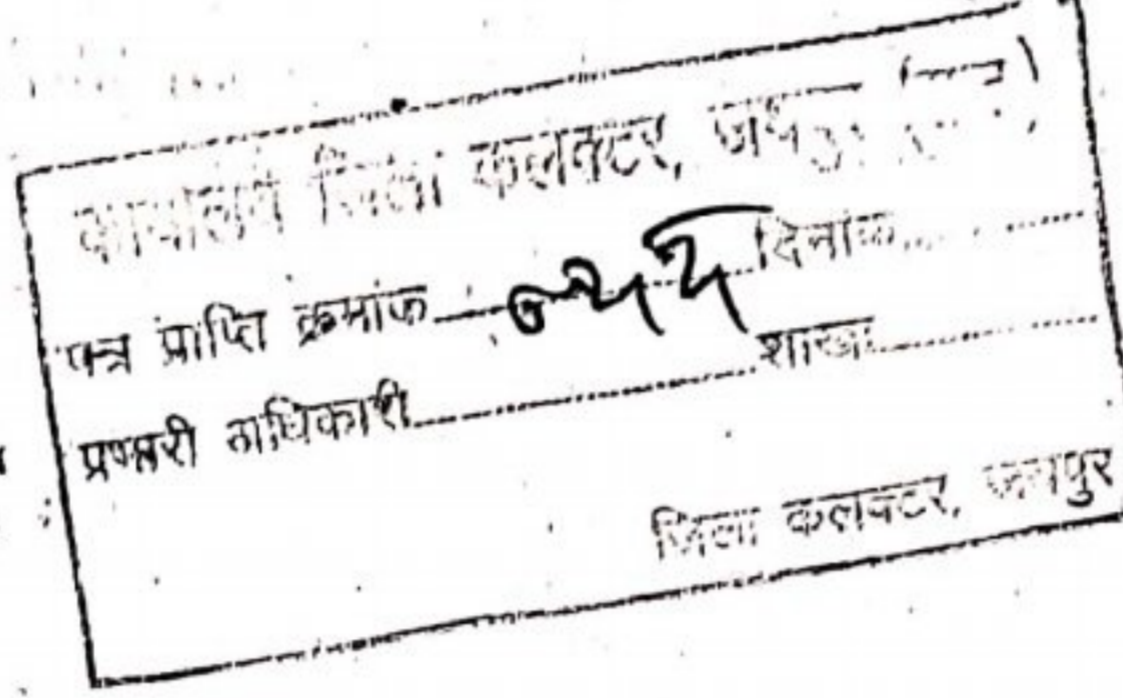 कार्यालय जिला कलक्टर, जयपुर
पत्र प्राप्ति क्रमांक दिनांक
प्रभारी अधिकारी शाखा
जिला कलक्टर, जयपुर